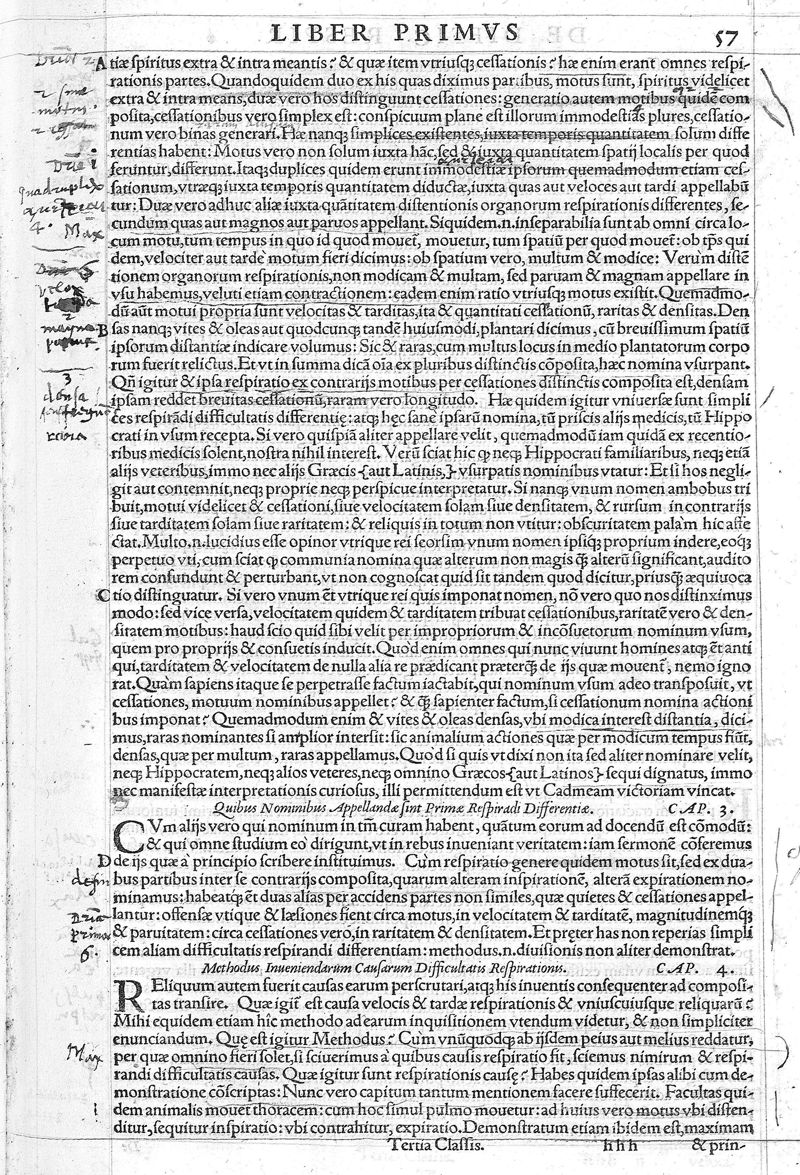 LIBER PRIMVS 57
A tiæ spiritus extra & intra meantis? & quæ item vtriusq; cessationis? hæ enim erant omnes respi-
rationis partes. Quandoquidem duo ex his quas diximus partibus, motus sunt, spiritus videlicet
extra & intra means, duæ vero hos distinguunt cessationes: generatio autem motibus quidē com
posita, cessationibus vero simplex est: conspicuum plane est illorum immodestiās plures, cessatio-
num vero binas generari. Hæ nanq; simplices existentes, iuxta temporis quantitatem solum diffe
rentias habent: Motus vero non solum iuxta hāc, sed & iuxta quantitatem spatij localis per quod
feruntur, differunt. Itaq; duplices quidem erunt immodestiæ ipsorum quemadmodum etiam ces-
sationum, vtræq; iuxta temporis quantitatem diductæ, iuxta quas aut veloces aut tardi appellabū
tur: Duæ vero adhuc aliæ iuxta quātitatem distentionis organorum respirationis differentes, se-
cundum quas aut magnos aut paruos appellant. Siquidem .n. inseparabilia sunt ab omni circa lo-
cum motu, tum tempus in quo id quod mouet̄, mouetur, tum spatiū per quod mouet̄: ob tp̄s qui
dem, velociter aut tarde motum fieri dicimus: ob spatium vero, multum & modice: Verùm distē
tionem organorum respirationis, non modicam & multam, sed paruam & magnam appellare in
vsu habemus, veluti etiam contractionem: eadem enim ratio vtriusq; motus existit. Quemadmo-
dū aūt motui propria sunt velocitas & tarditas, ita & quantitati cessationū, raritas & densitas. Den
B sas nanq; vites & oleas aut quodcunq; tandē huiusmodi, plantari dicimus, cū breuissimum spatiū
ipsorum distantiæ indicare volumus: Sic & raras, cum multus locus in medio plantatorum corpo
rum fuerit relictus. Et vt in summa dicā oīa ex pluribus distinctis cōposita, hæc nomina vsurpant.
Qn̄ igitur & ipsa respiratio ex contrarijs motibus per cessationes distinctis composita est, densam
ipsam reddet breuitas cessationū, raram vero longitudo. Hæ quidem igitur vniuersæ sunt simpli
ces respirādi difficultatis differentię: atq; hęc sane ipsarū nomina, tū priscis alijs medicis, tū Hippo
crati in vsum recepta. Si vero quispiā aliter appellare velit, quemadmodū iam quidā ex recentio-
ribus medicis solent, nostra nihil interest. Verū sciat hic ꝙ neq; Hippocrati familiaribus, neq; etiā
alijs veteribus, immo nec alijs Græcis {aut Latinis,} vsurpatis nominibus vtatur: Et si hos negli-
git aut contemnit, neq; proprie neq; perspicue interpretatur. Si nanq; vnum nomen ambobus tri
buit, motui videlicet & cessationi, siue velocitatem solam siue densitatem, & rursum in contrarijs
siue tarditatem solam siue raritatem: & reliquis in totum non vtitur: obscuritatem palàm hic affe
ctat. Multo .n. lucidius esse opinor vtrique rei seorsim vnum nomen ipsiq; proprium indere, eoq;
perpetuo vti, cum sciat ꝙ communia nomina quæ alterum non magis q̄; alterū significant, audito
rem confundunt & perturbant, vt non cognoscat quid sit tandem quod dicitur, priusq̄; æquiuoca
C tio distinguatur. Si vero vnum ēt vtrique rei quis imponat nomen, nō vero quo nos distinximus
modo: sed vice versa, velocitatem quidem & tarditatem tribuat cessationibus, raritatē vero & den-
sitatem motibus: haud scio quid sibi velit per impropriorum & incōsuetorum nominum vsum,
quem pro proprijs & consuetis inducit. Quòd enim omnes qui nunc viuunt homines atq; ēt anti
qui, tarditatem & velocitatem de nulla alia re prædicant præterq̄; de ijs quæ mouent̄, nemo igno
rat. Quàm sapiens itaque se perpetrasse factum iactabit, qui nominum vsum adeo transposuit, vt
cessationes, motuum nominibus appellet? & q̄; sapienter factum, si cessationum nomina actioni
bus imponat? Quemadmodum enim & vites & oleas densas, vbi modica interest distantia, dici-
mus, raras nominantes si amplior intersit: sic animalium actiones quæ per modicum tempus fiūt,
densas, quæ per multum, raras appellamus. Quòd si quis vt dixi non ita sed aliter nominare velit,
neq; Hippocratem, neq; alios veteres, neq; omnino Græcos {aut Latinos} sequi dignatus, immo
nec manifestæ interpretationis curiosus, illi permittendum est vt Cadmeam victoriam vincat.
Quibus Nominibus Appellandæ sint Primæ Respirādi Differentiæ. CAP. 3.
CVm alijs vero qui nominum in tm̄ curam habent, quātum eorum ad docendū est cōmodū:
& qui omne studium eò dirigunt, vt in rebus inueniant veritatem: iam sermonē cōferemus
D de ijs quæ à principio scribere instituimus. Cùm respiratio genere quidem motus sit, sed ex dua-
bus partibus inter se contrarijs composita, quarum alteram inspirationē, alterā expirationem no-
minamus: habeatq; ēt duas alias per accidens partes non similes, quæ quietes & cessationes appel-
lantur: offensæ vtique & læsiones fient circa motus, in velocitatem & tarditatē, magnitudinemq;
& paruitatem: circa cessationes vero, in raritatem & densitatem. Et pręter has non reperias simpli
cem aliam difficultatis respirandi differentiam: methodus .n. diuisionis non aliter demonstrat.
Methodus Inueniendarum Causarum Difficultatis Respirationis. CAP. 4.
RELiquum autem fuerit causas earum perscrutari, atq; his inuentis consequenter ad composi-
tas transire. Quæ igit̄ est causa velocis & tardæ respirationis & vniuscuiusque reliquarū?
Mihi equidem etiam hîc methodo ad earum inquisitionem vtendum videtur, & non simpliciter
enunciandum. Quę est igitur Methodus? Cùm vnūquodq; ab ijsdem peius aut melius reddatur,
per quæ omnino fieri solet, si sciuerimus à quibus causis respiratio fit, sciemus nimirum & respi-
randi difficultatis causas. Quæ igitur sunt respirationis causę? Habes quidem ipsas alibi cum de-
monstratione cōscriptas: Nunc vero capitum tantum mentionem facere suffecerit. Facultas qui-
dem animalis mouet thoracem: cum hoc simul pulmo mouetur: ad huius vero motus vbi disten-
ditur, sequitur inspiratio: vbi contrahitur, expiratio. Demonstratum etiam ibidem est, maximam
Tertia Classis. hhh & prin-